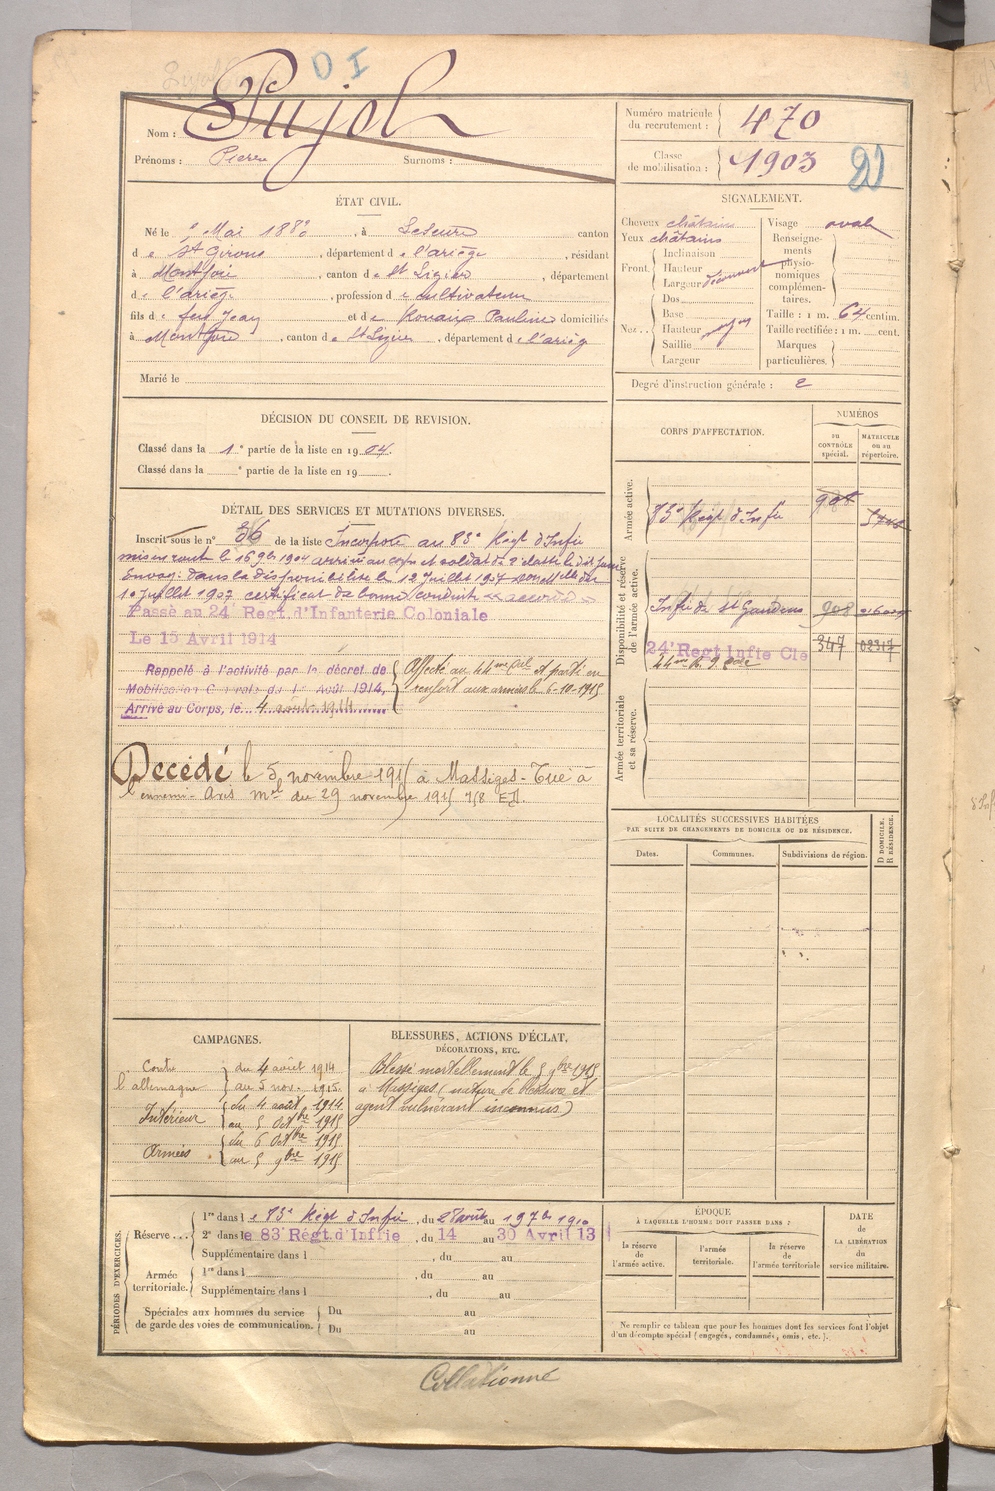 D I
Nom : Pujol
Prénoms : Pierre Surnoms :
Numéro matricule du recrutement : 470
Classe de mobilisation : 1903
ÉTAT CIVIL.
Né le Mai 188 , à canton
de St Girons , département de l'ariège , résidant
à Montjoie , canton de St Lizier , département
de l'ariège , profession de cultivateur
fils de feu Jean et de Rouaix Pauline domiciliés
à Montjoie , canton de St Lizier , département de l'ariég
Marié le
SIGNALEMENT.
Cheveux châtains
Yeux châtains
Front. Inclinaison
Hauteur
Largeur découvert
Nez... Dos
Base
Hauteur moyen
Saillie
Largeur
Visage ovale
Renseignements physionomiques complémentaires.
Taille : 1 m. 64 centim.
Taille rectifiée : 1 m. cent.
Marques particulières.
Degré d'instruction générale : 2
DÉCISION DU CONSEIL DE REVISION.
Classé dans la 1e partie de la liste en 1904.
Classé dans la e partie de la liste en 19 .
DÉTAIL DES SERVICES ET MUTATIONS DIVERSES.
Inscrit sous le n° 36 de la liste Incorporé au 83e Regt d'Infie
mis en route le 16 9bre 1904 arrivé au corps et soldat de 2e classe le dit jour
Envoyé dans la disponibilité le 12 Juillet 1907
10 Juillet 1907 certificat de bonne conduite « accordé »
Passé au 24e Regt d'Infanterie Coloniale
Le 15 Avril 1914
Rappelé à l'activité par le décret de
Mobilisation Générale du 1er Août 1914,
Arrivé au Corps, le 4 août 1914
Affecté au 44me Cial et parti en
renfort aux armées le 6-10-1915
Décédé le 5 novembre 1915 à Massiges - Tué à
l'ennemi - Avis mel du 29 novembre 1915
CORPS D'AFFECTATION.
NUMÉROS
au CONTRÔLE spécial.
MATRICULE ou au répertoire.
Armée active.
83e Regt d'Infie 908
Disponibilité et réserve de l'armée active.
Infie de St Gaudens 908
24e Regt Infie Cle 347 02317
44me
Armée territoriale et sa réserve.
LOCALITÉS SUCCESSIVES HABITÉES
PAR SUITE DE CHANGEMENTS DE DOMICILE OU DE RÉSIDENCE.
Dates. Communes. Subdivisions de région. D DOMICILE. R RÉSIDENCE.
CAMPAGNES.
Contre l'allemagne du 4 août 1914
au 5 nov. 1915.
Intérieur du 4 août 1914
au 5 Octbre 1915
Armées du 6 Octbre 1915
au 5 9bre 1915
BLESSURES, ACTIONS D'ÉCLAT,
DÉCORATIONS, ETC.
Blessé mortellement le 5 9bre 1915
à Massiges (nature de blessure et
agent vulnérant inconnus)
PÉRIODES D'EXERCICES.
Réserve... 1re dans le 83e Regt d'Infie , du 2 août au 1910
2e dans le 83 Régt d'Inftie , du 14 au 30 Avril 13
Supplémentaire dans l , du au
Armée territoriale. 1re dans l , du au
Supplémentaire dans l , du au
Spéciales aux hommes du service
de garde des voies de communication. Du au
Du au
ÉPOQUE
À LAQUELLE L'HOMME DOIT PASSER DANS :
la réserve de l'armée active.
l'armée territoriale.
la réserve de l'armée territoriale
DATE DE LA LIBÉRATION du service militaire.
Ne remplir ce tableau que pour les hommes dont les services font l'objet
d'un décompte spécial (engagés, condamnés, omis, etc.).
Collationné